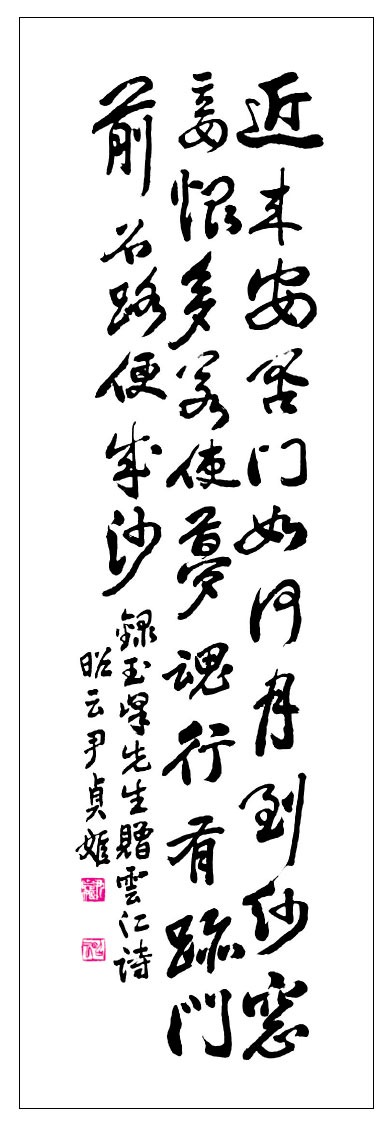 近来安否問如何月到紗窓
妾恨多若使夢魂行有跡門
前石路便成沙
録玉峰先生贈雲江詩
昭云尹貞姬